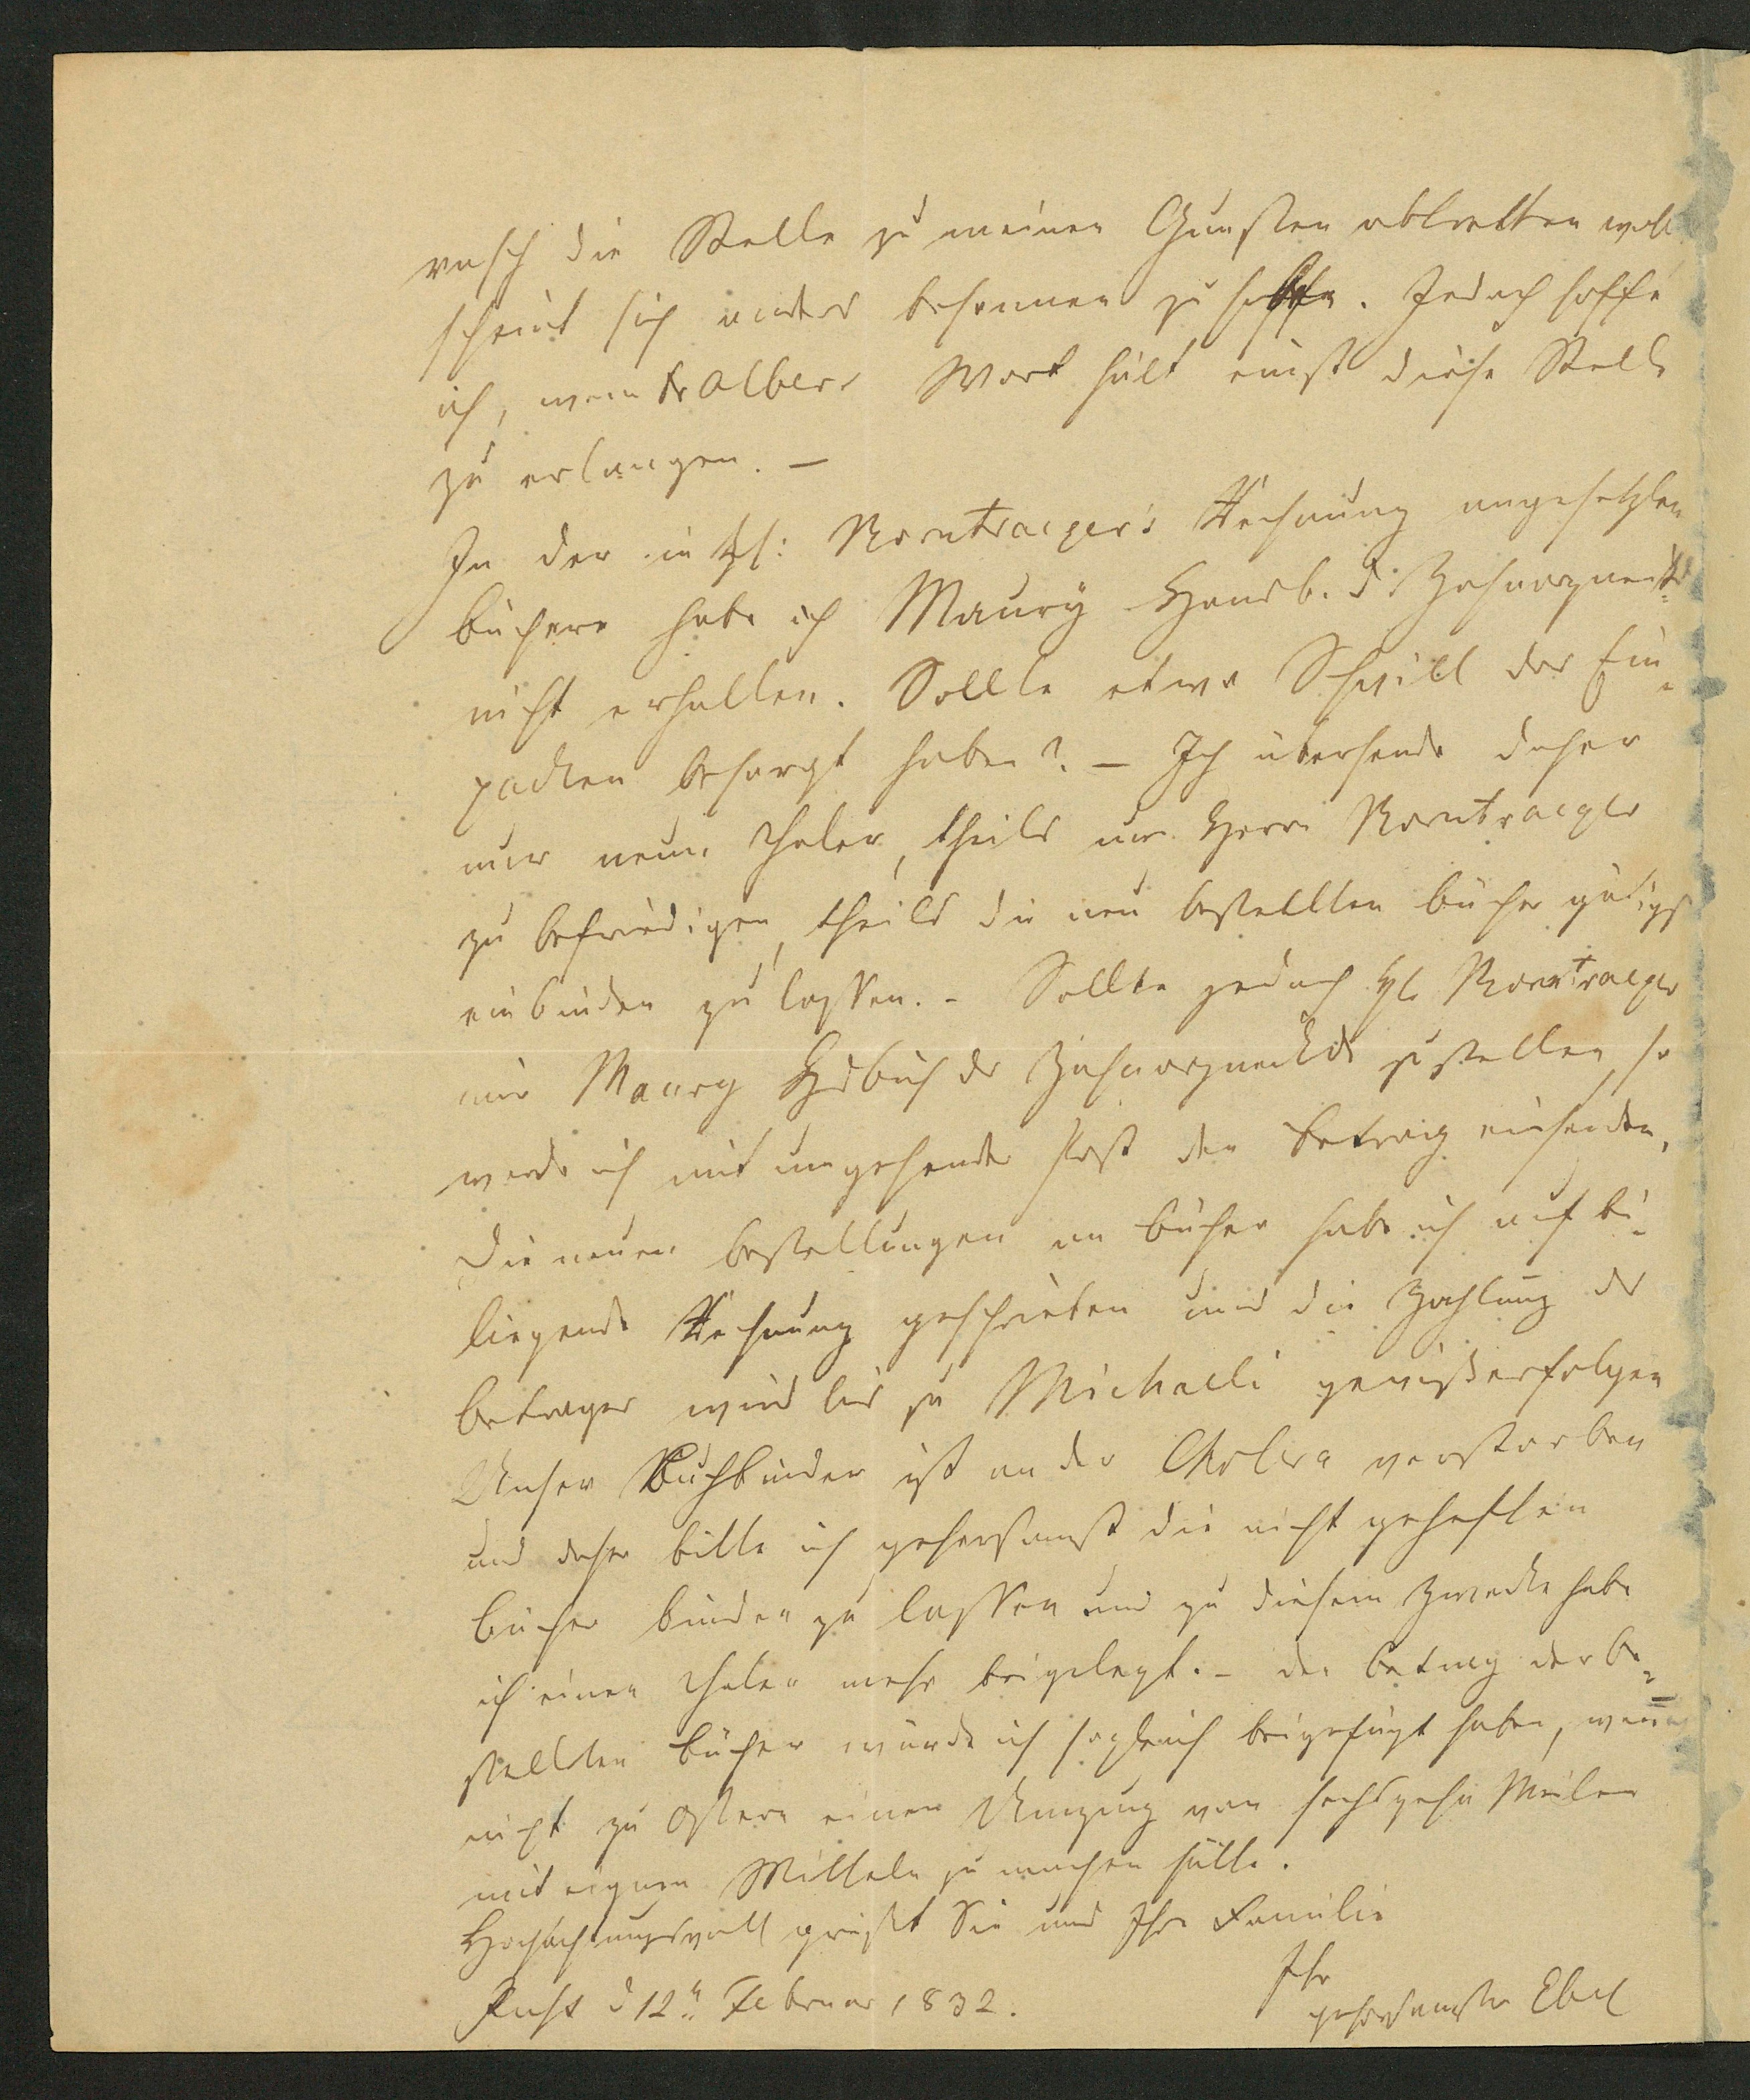 rasch die Stelle zu meinen Gunsten abtretten woll
scheint sich anders besonnen zu haben. Jedoch hoffe
ich, wenn Dr Albers Wort hält einst diese Stelle
zu erlangen. —
In der in H: Borntraeger's Rechnung angesetzten
Büchern habe ich Maury Handb. d: Zahnarzneik:
nicht erhalten. Sollte etwa Schrill das Ein-
packen besorgt haben? — Ich übersende daher
nur neun Thaler, theils um Herrn Borntraeger
zu befriedigen, theils die neu bestellten Bücher gütigst
einbinden zu lassen. - Sollte jedoch H. Borntraeger
mir Maury Hdbuch der Zahnarzneikde zustellen, so
werde ich mit umgehender Post den Betrag einsenden.
Die neuen Bestellungen an Bücher habe ich auf bei-
liegende Rechnung geschrieben und die Zahlung des
Betrages wird bis zu Michaeli gewiß erfolgen
Unser Buchbinder ist an der Cholera verstorben
und daher bitte ich gehorsamst die nicht gehefteten
Bücher binden zu lassen und zu diesem Zwecke habe
ich einen Thaler mehr beigelegt. - Den Betrag der be-
stellten Bücher würde ich sogleich beigefügt haben, wenn
nicht zu Ostern einen Umzug von sechszehn Meilen
mit eignen Mitteln zu machen hätte.
Hochachtungsvoll grüßt Sie und Ihre Familie
d 12n Februar 1832.
Ihr
gehorsamster Ebel